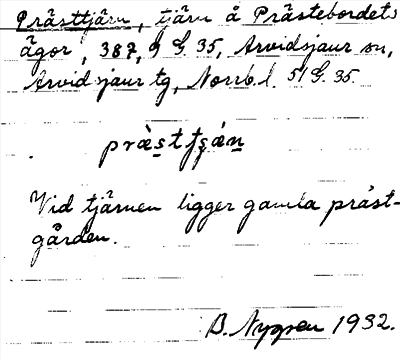 Prästtjärn, tjärn å Prästebordets
ägor, 387, 9 G 35, Arvidsjaur sn,
Arvidsjaur tg, Norrb. l. 51 G. 35.
Vid tjärnen ligger gamla präst-
gården.
B. Nygren 1932.